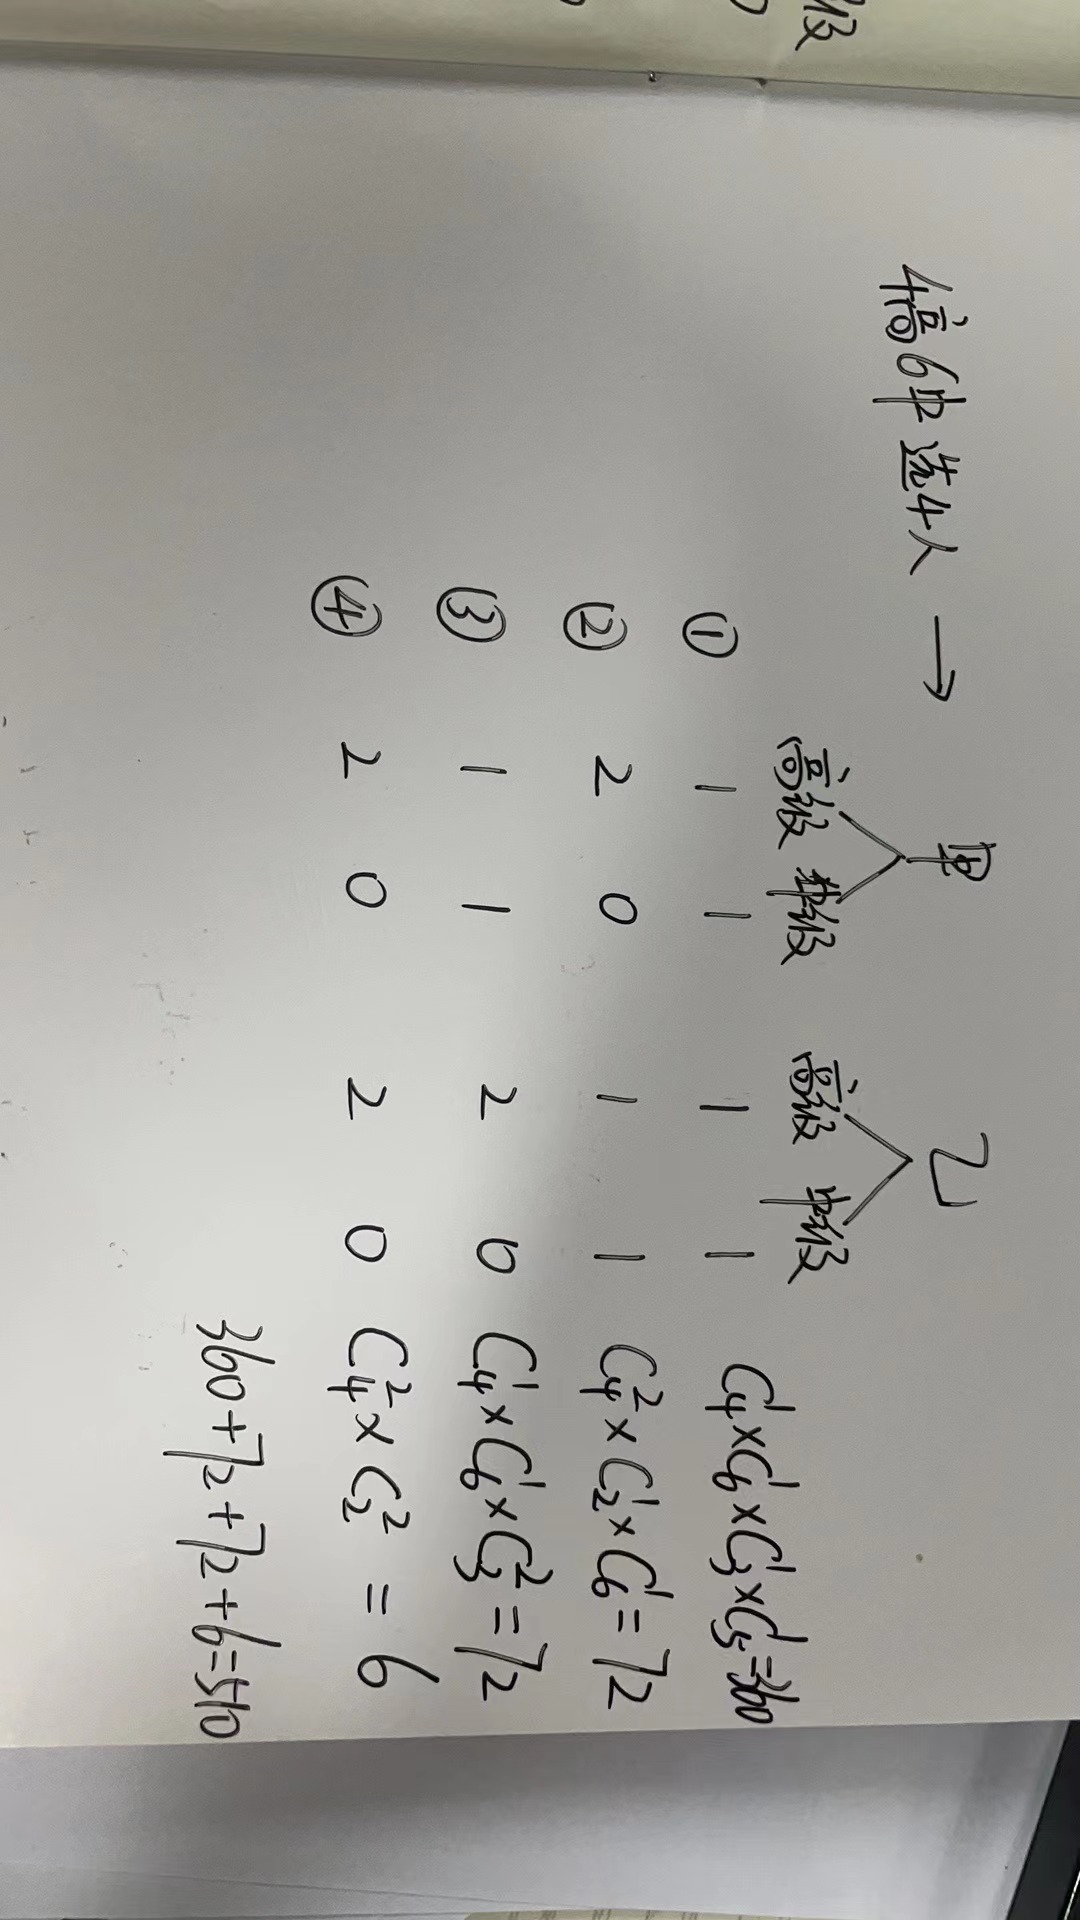 级
4高6中选4人 → 甲 乙
高级 中级 高级 中级
① 1 1 1 1 C₄¹×C₆¹×C₃¹×C₅¹=360
② 2 0 1 1 C₄²×C₂¹×C₆¹=72
③ 1 1 2 0 C₄¹×C₆¹×C₃²=72
④ 2 0 2 0 C₄²×C₂²=6
360+72+72+6=510